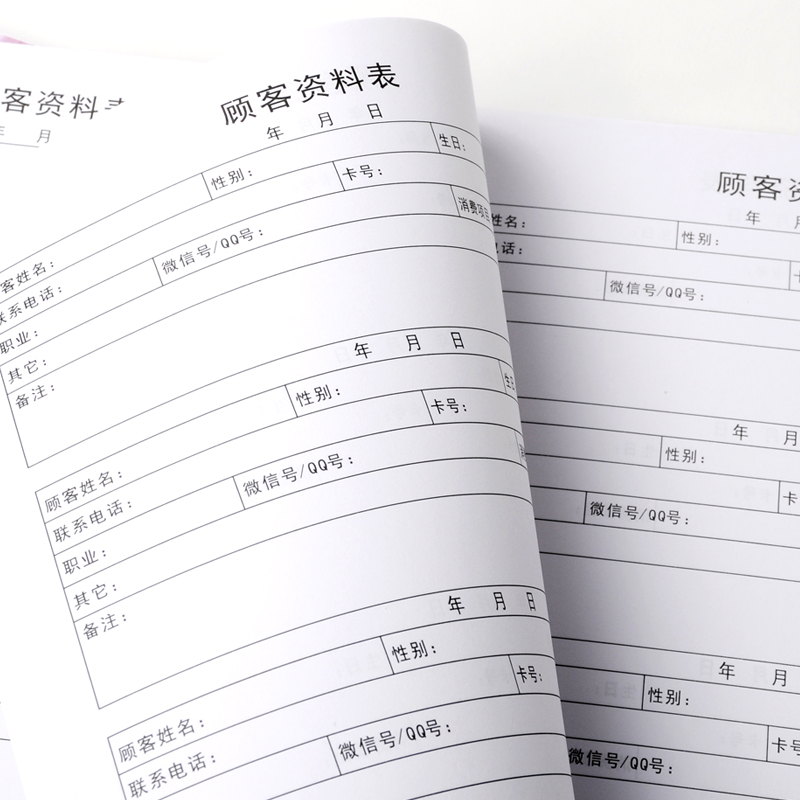 客资料
年 月
顾客资料表
年 月 日
顾客姓名: 性别: 生日:
联系电话: 卡号:
职业: 微信号/QQ号: 消费项目
其它:
备注:
年 月 日
顾客姓名: 性别: 生日
联系电话: 卡号:
职业: 微信号/QQ号:
其它:
备注:
年 月 日
顾客姓名: 性别:
联系电话: 卡号:
微信号/QQ号:
顾客资
年 月
姓名: 性别:
电话: 卡
微信号/QQ号:
年 月
性别:
卡
微信号/QQ号:
年 月
性别:
卡号
微信号/QQ号: